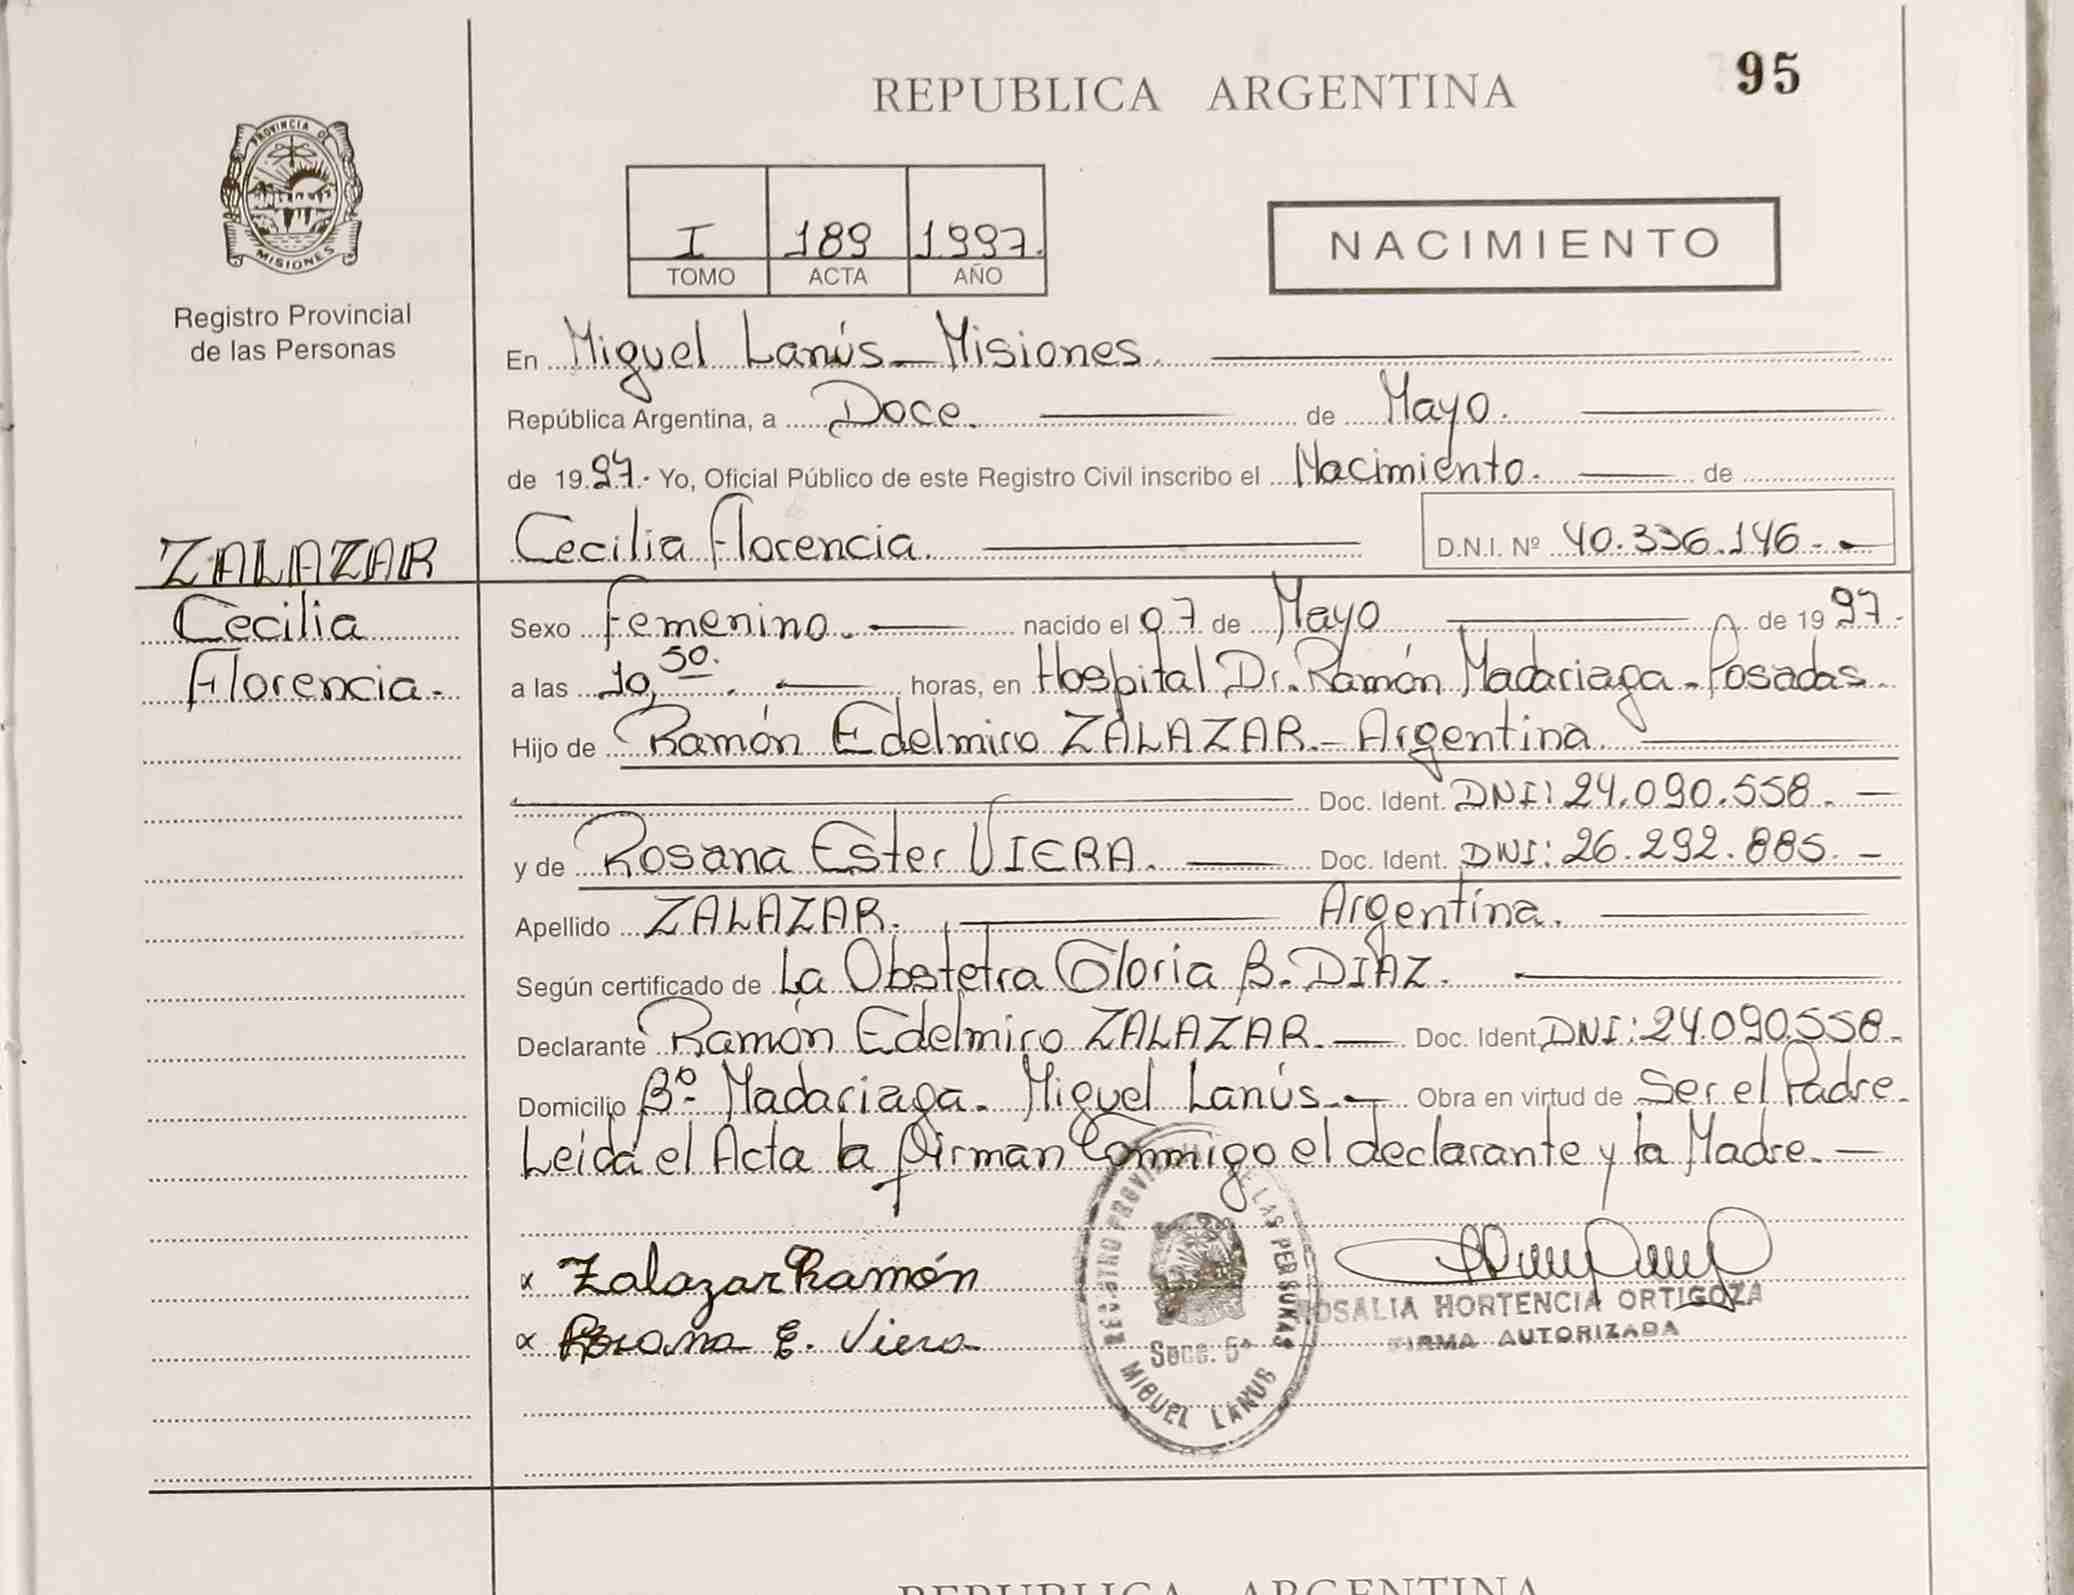 REPUBLICA ARGENTINA
95
PROVINCIA DE
MISIONES
Registro Provincial
de las Personas
I 189 1997.
TOMO ACTA AÑO
NACIMIENTO
En Miguel Lanús - Misiones.
República Argentina, a Doce. de Mayo.
de 1997.- Yo, Oficial Público de este Registro Civil inscribo el Nacimiento. de
Cecilia Florencia. D.N.I. Nº 40.336.146.-
ZALAZAR
Cecilia
Florencia.-
Sexo Femenino.- nacido el 07 de Mayo de 1997.-
a las 10,50. horas, en Hospital Dr. Ramón Madariaga - Posadas.
Hijo de Ramón Edelmiro ZALAZAR.- Argentina.
Doc. Ident. DNI: 24.090.558.-
y de Rosana Ester VIERA. Doc. Ident. DNI: 26.292.885.-
Apellido ZALAZAR. Argentina.
Según certificado de La Obstetra Gloria B. DIAZ.
Declarante Ramón Edelmiro ZALAZAR.- Doc. Ident. DNI: 24.090.558.-
Domicilio Bº Madariaga - Miguel Lanús.- Obra en virtud de Ser el Padre.
Leida el Acta la firman Conmigo el declarante y la Madre.-
x Zalazar Ramón
x Rosana E. Viera
REGISTRO PROVINCIAL DE LAS PERSONAS
Secc. 5ª
MIGUEL LANUS
ROSALIA HORTENCIA ORTIGOZA
FIRMA AUTORIZADA
REPUBLICA ARGENTINA